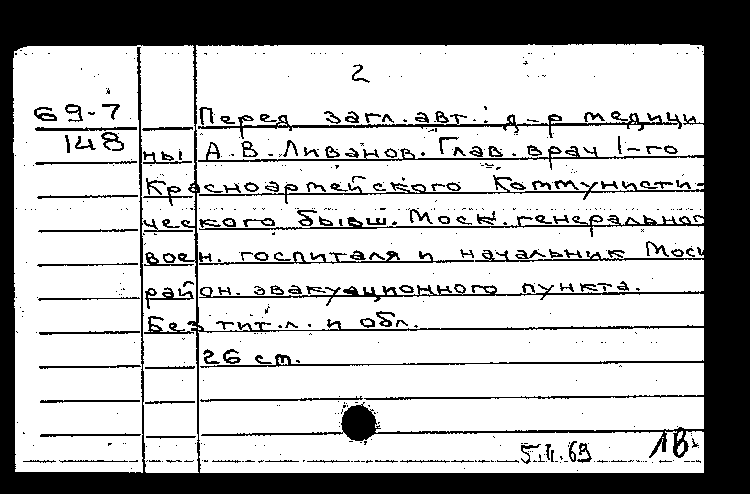 2
69-7
148
Перед загл. авт.: д-р медици
ны А.В. Ливанов. Глав. врач 1-го
Красноармейского Коммунисти-
ческого бывш. Моск. генерального
воен. госпиталя и начальник Моск
район. эвакуационного пункта.
Без тит. л. и обл.
26 cm.
69 1В